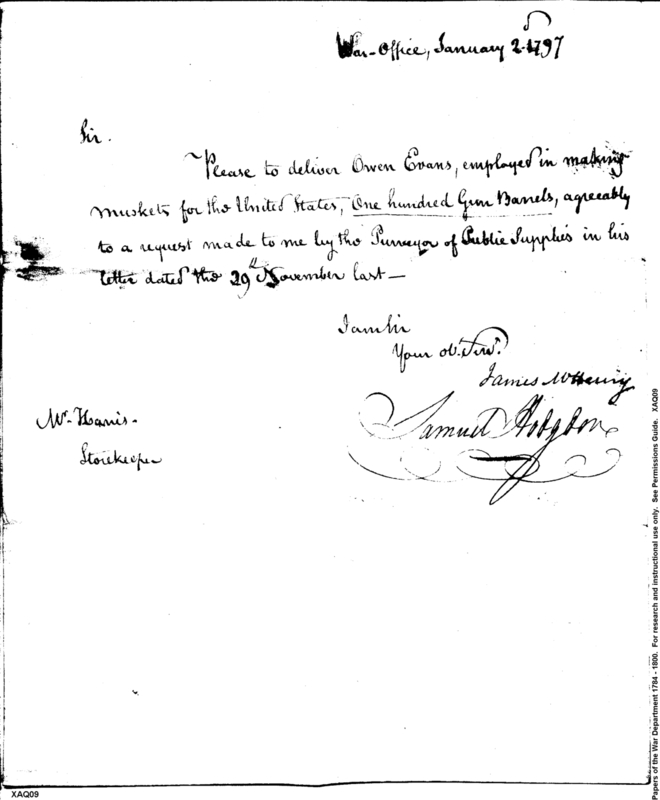 War-Office, January 2.d 1797
Sir.
Please to deliver Owen Evans, employed in making
muskets for the United States, One hundred Gun Barrels, agreeably
to a request made to me by the Purveyor of Public Supplies in his
letter dated the 29th November last—
I am Sir
Your ob.t Serv.t
James McHenry
Samuel Hodgdon
Mr. Harris.
Storekeeper
XAQ09
Papers of the War Department 1784 - 1800. For research and instructional use only. See Permissions Guide. XAQ09